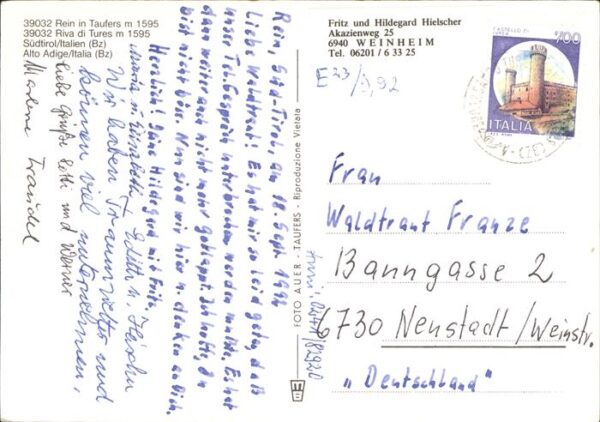 39032 Rein in Taufers m 1595
39032 Riva di Tures m 1595
Südtirol/Italien (Bz)
Alto Adige/Italia (Bz)
Rein, Süd-Tirol, am 18. Sept. 1992
Liebe Waldtraut! Es hat mir so leid getan, daß
unser Tel. Gespräch unterbrochen werden mußte. Es hat
dann weiter auch nicht mehr geklappt. Ich hoffe, Du
bist nicht böse. Nun sind wir hier u. denken an Dich.
Herzlichst Deine Hildegard mit Fritz.
Maria u. Elisabeth Edith u. Heinhn
Wir haben Traumwetter und
können viel unternehmen,
liebe Grüße Lotti und Werner
Marlene Traudel
FOTO AUER - TAUFERS - Riproduzione Vietata
Fritz und Hildegard Hielscher
Akazienweg 25
6940 WEINHEIM
Tel. 06201 / 6 33 25
E 23/9,92
CASTELLO DI
700
ITALIA
Frau
Waldtraut Franze
Banngasse 2
6730 Neustadt/Weinstr.
„Deutschland"
06321/82920